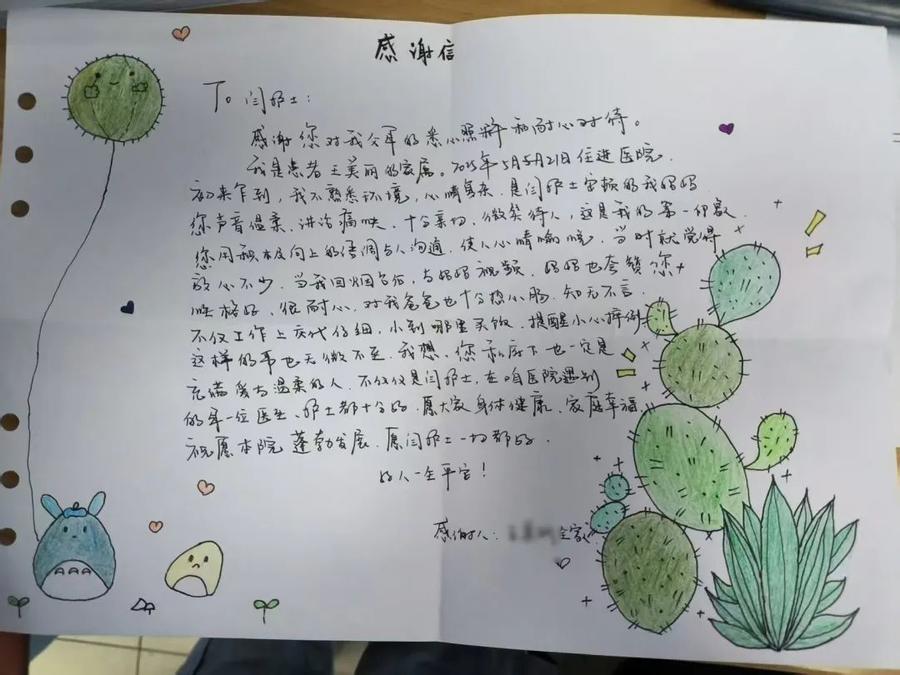 感谢信
To 闫护士：
感谢您对我父母的悉心照料和耐心对待。
我是患者王美丽的家属。2025年5月21日住进医院，
初来乍到，我不熟悉环境，心情复杂，是闫护士安顿的我妈妈
您声音温柔，讲话痛快，十分亲切，微笑待人，这是我的第一印象，
您用积极向上的语调与人沟通，使人心情愉悦，当时就觉得
放心不少，当我回烟台后，与妈妈视频，妈妈也夸赞您
性格好，很耐心，对我爸爸也十分热心肠，知无不言，
不仅工作上交代仔细，小到哪里买饭，提醒小心摔倒
这样的事也无微不至，我想，您私底下也一定是
充满爱与温柔的人，不仅仅是闫护士，在咱医院遇到
的每一位医生、护士都十分好，愿大家身体健康，家庭幸福，
祝愿本院蓬勃发展，愿闫护士一切都好。
好人一生平安！
感谢人：全家